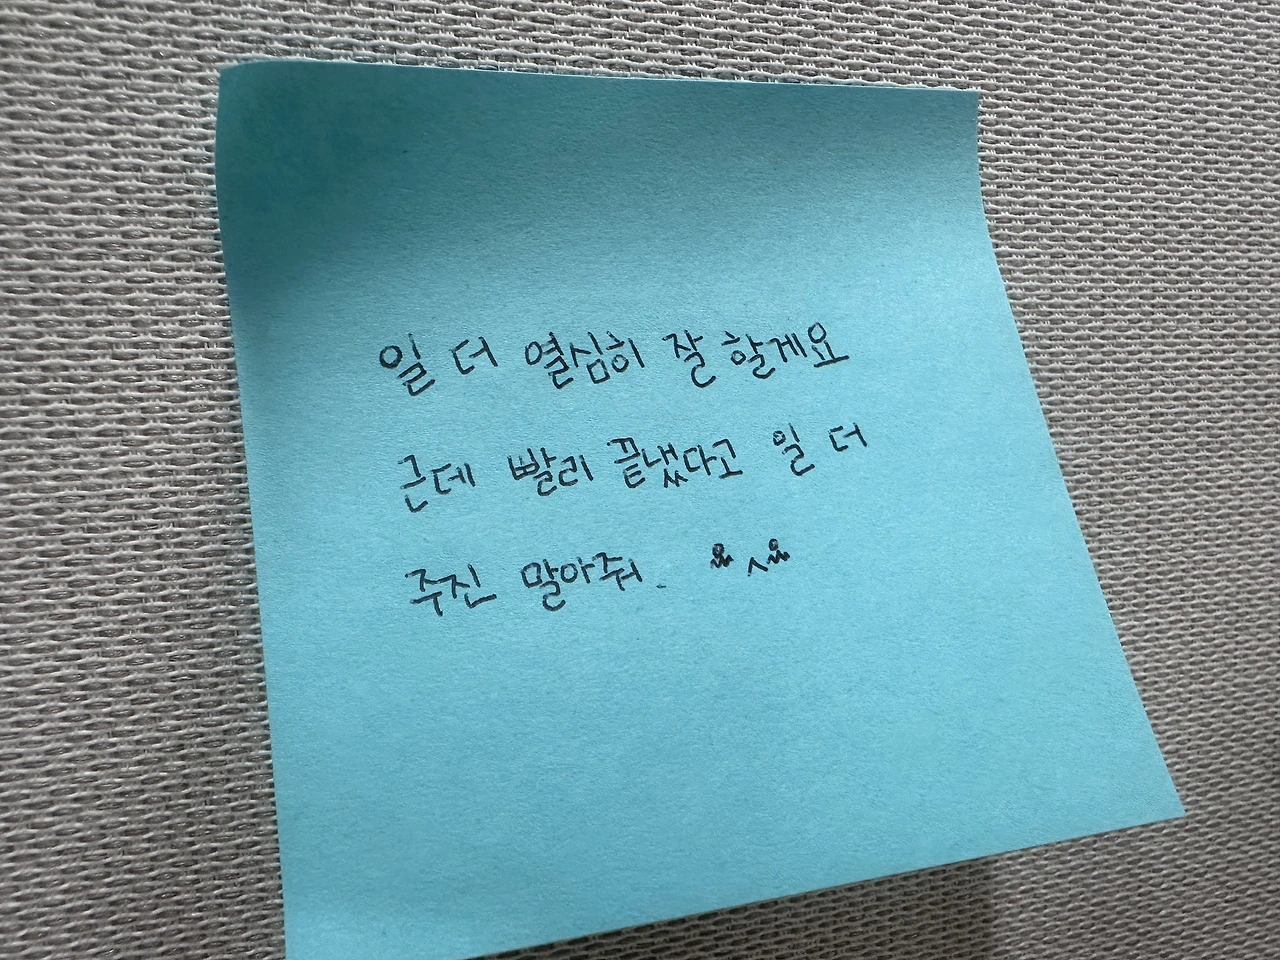 일 더 열심히 잘 할게요
근데 빨리 끝냈다고 일 더
주진 말아줘.